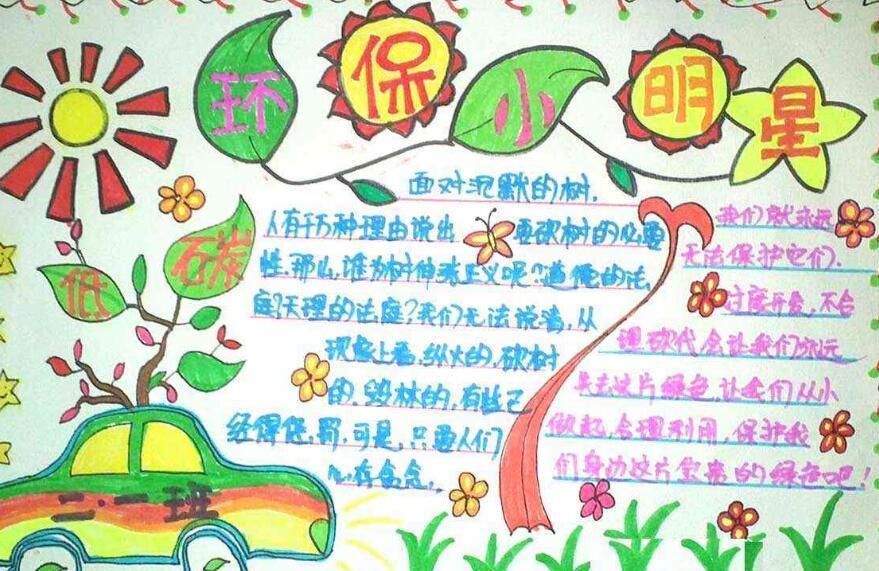 环保小明星
低
石炭
二·一班
面对沉默的树，
人有千万种理由说出 要砍树的必要
性，那么，谁为树伸张正义呢？道德的法
庭？天理的法庭？我们无法说清，从
现象上看，纵火的，砍树
的，毁林的，有些已
经得惩罚，可是，只要人们
心存贪念，
我们就永远
无法保护它们.
过度开台，不合
理砍伐，会让我们永远
失去这片绿色，让我们从小
做起，合理利用，保护我
们身边这片宝贵的绿色吧！